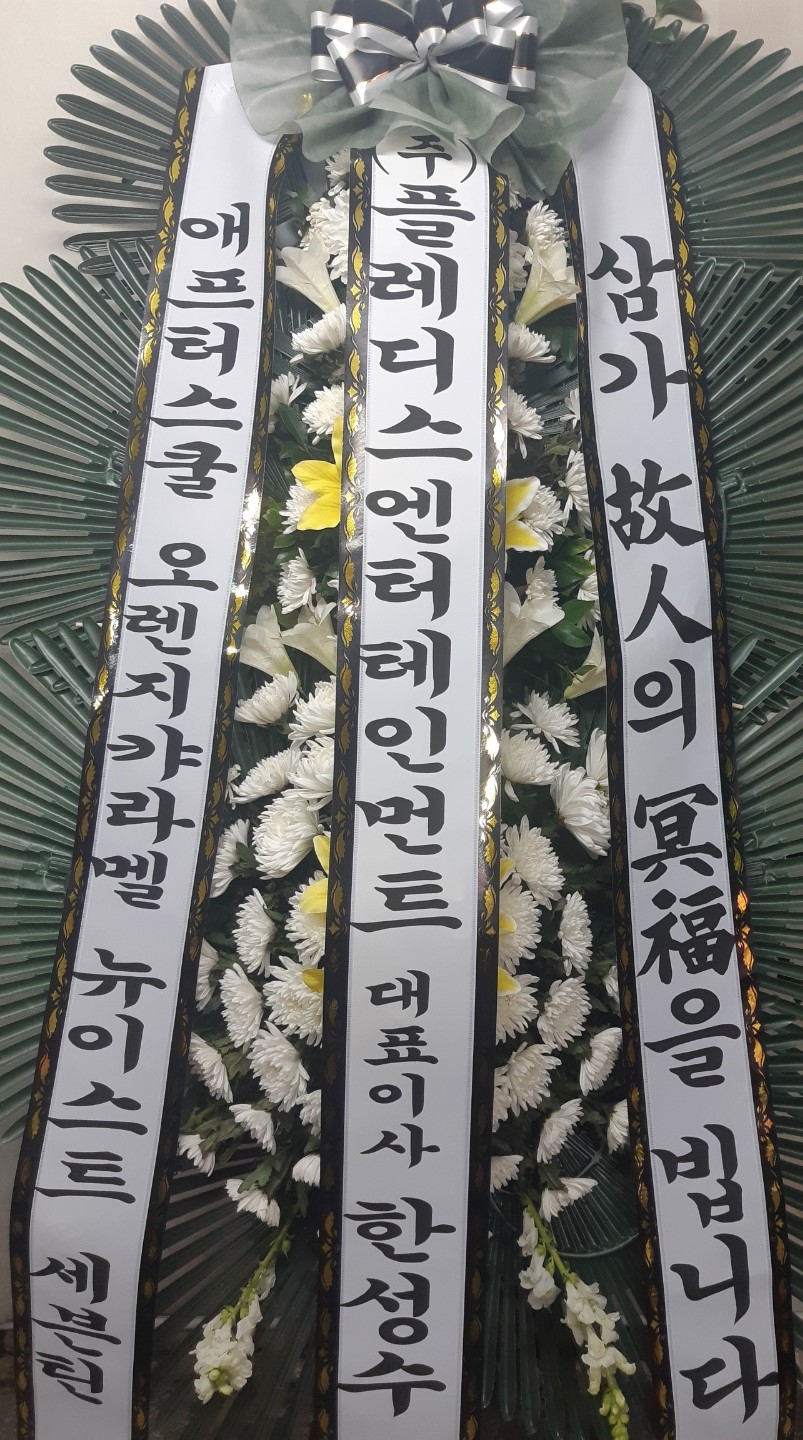 삼가 故人의 冥福을 빕니다
(주)플레디스엔터테인먼트 대표이사 한성수
애프터스쿨 오렌지캬라멜 뉴이스트 세븐틴